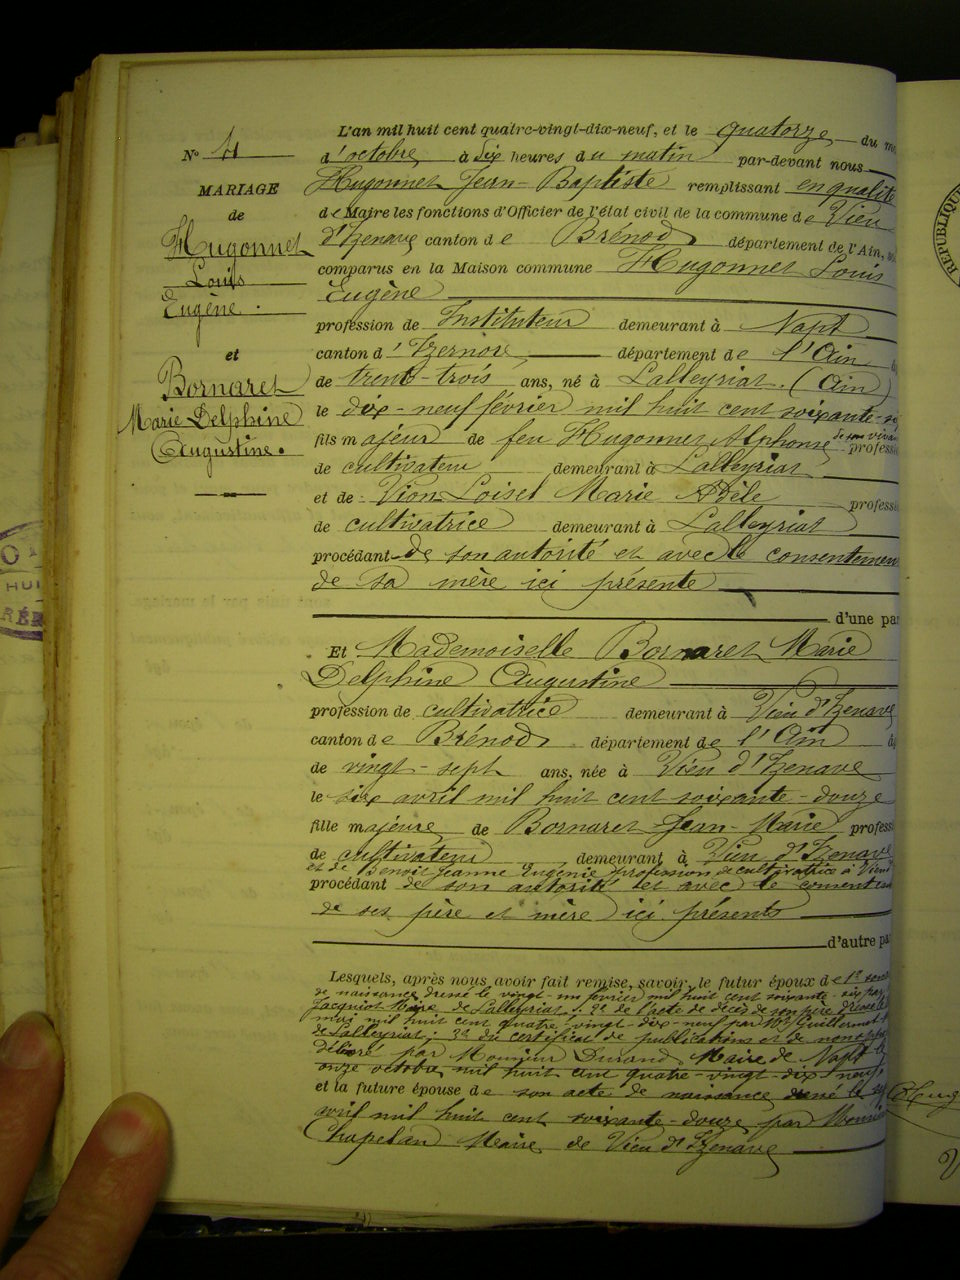 L'an mil huit cent quatre-vingt-dix-neuf, et le quatorze du
N° 11
d'octobre à six heures du matin par-devant nous
MARIAGE
Hugonnet Jean-Baptiste remplissant en qualité
de
de Maire les fonctions d'Officier de l'état civil de la commune de Vieu
Hugonnet
d'Izenave canton de Brénod département de l'Ain,
Louis
comparus en la Maison commune Hugonnet Louis
Eugène.
Eugène
profession de Instituteur demeurant à Napt
et
canton d'Izernore département de l'Ain
Bornaret
de trent-trois ans, né à Lalleyriat. (Ain)
Marie Delphine
le dix-neuf février mil huit cent soixante-si
Augustine.
fils majeur de feu Hugonnet Alphonse de son vivant professi
de cultivateur demeurant à Lalleyriat
et de Vion Loisel Marie Adèle professi
de cultivatrice demeurant à Lalleyriat
procédant de son autorité et avec le consentemen
de sa mère ici présente
d'une par
Et Mademoiselle Bornaret Marie
Delphine Augustine
profession de cultivatrice demeurant à Vieu d'Izenave
canton de Brénod département de l'Ain
de vingt-sept ans, née à Vieu d'Izenave
le six avril mil huit cent soixante-douze
fille majeure de Bornaret Jean-Marie profess
de cultivateur demeurant à Vieu d'Izenave
et de Benoit Jeanne Eugénie profession de cultivatrice à Vieu
procédant de son autorité et avec le consente
de ses père et mère ici présents
d'autre pa
Lesquels, après nous avoir fait remise, savoir, le futur époux de 1°
de naissance dressé le vingt-un février mil huit cent soixante-six par
Jacquiot Maire de Lalleyriat; 2° de l'acte de décès de son père dressé le
mai mil huit cent quatre-vingt-dix-neuf par Mr Guillermet
de Lalleyriat; 3° du certificat de publications et de non
délivré par Monsieur Durand Maire de Napt le
onze octobre mil huit cent quatre-vingt-dix-neuf;
et la future épouse de son acte de naissance dressé le
avril mil huit cent soixante-douze par Monsieur
Chapelan Maire de Vieu d'Izenave
RÉPUBLIQUE
Hug